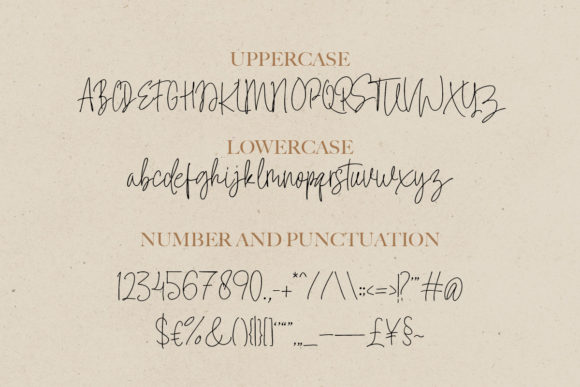 UPPERCASE
ABCDEFGHIJKLMNOPQRSTUVWXYZ
LOWERCASE
abcdefghijklmnopqrstuvwxyz
NUMBER AND PUNCTUATION
1234567890.,-+*^//\\::<=>|?'"#@
$€%&(){}[]‘’“”‚„_–—£¥§~